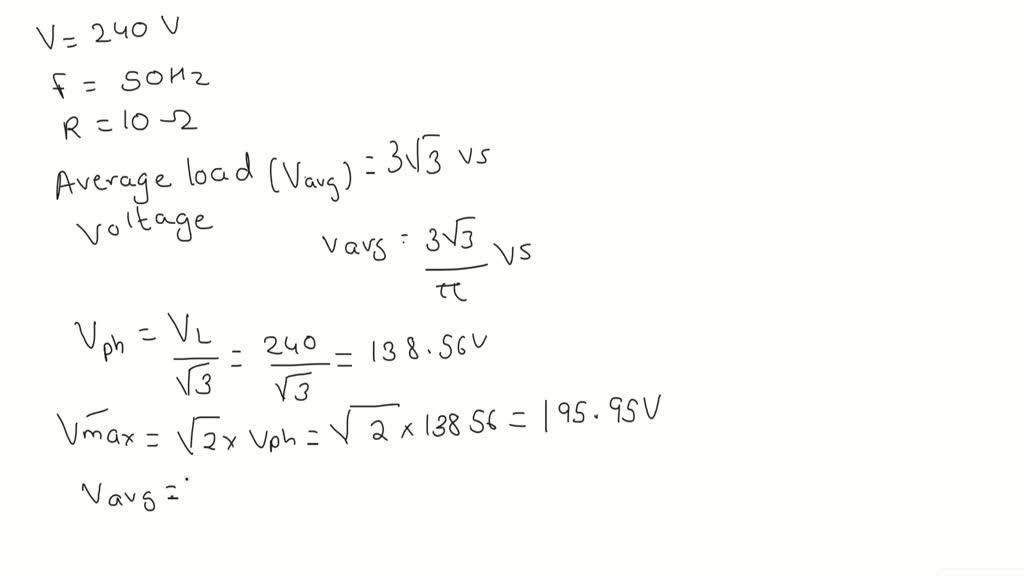 V = 240 V
F = 50Hz
R = 10 Ω
Average load (Vavg) = 3√3 vs
Voltage
Vavg = 3√3/π VS
Vph = VL/√3 = 240/√3 = 138.56V
Vmax = √2 × Vph = √2 × 138 56 = 195.95V
Vavg =